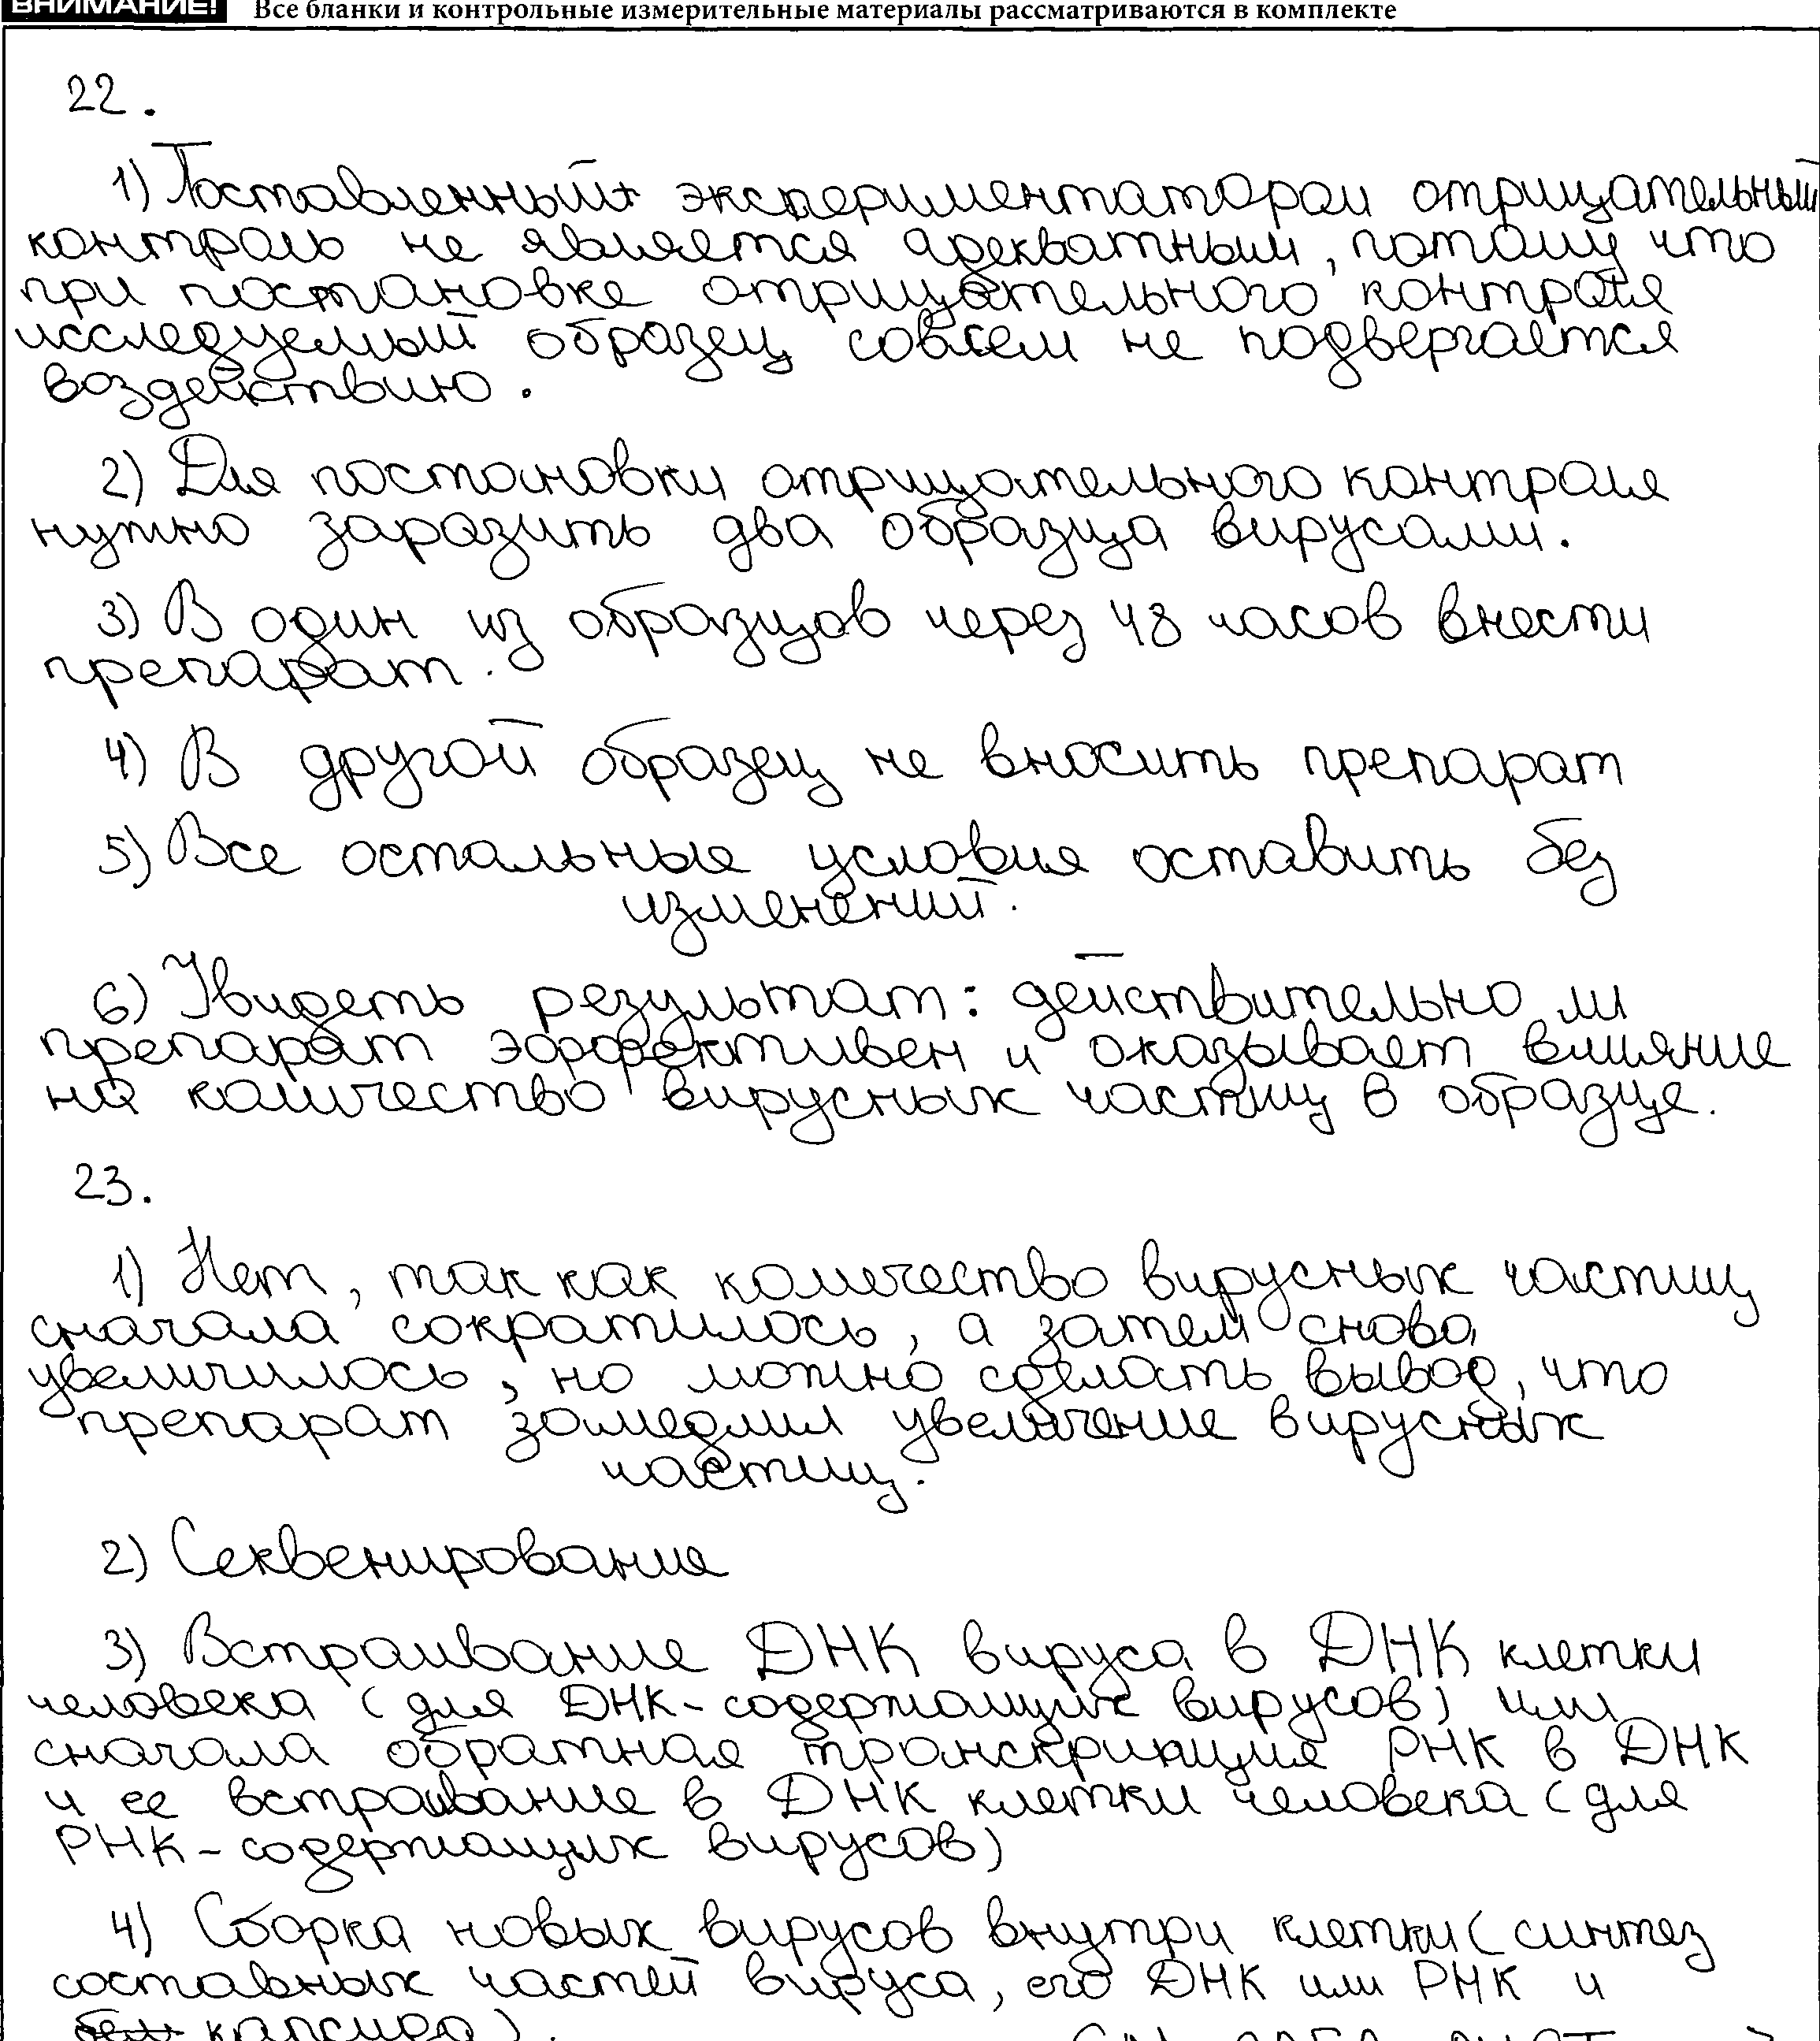 ВНИМАНИЕ! Все бланки и контрольные измерительные материалы рассматриваются в комплекте
22.
1) Поставленный экспериментатором отрицательный
контроль не является адекватным, потому что
при постановке отрицательного контроля
исследуемый образец совсем не подвергается
воздействию.
2) Для постановки отрицательного контроля
нужно заразить два образца вирусами.
3) В один из образцов через 48 часов внести
препарат.
4) В другой образец не вносить препарат
5) Все остальные условия оставить без
изменений.
6) Увидеть результат: действительно ли
препарат эффективен и оказывает влияние
на количество вирусных частиц в образце.
23.
1) Нет, так как количество вирусных частиц
сначала сократилось, а затем снова
увеличилось, но можно сделать вывод, что
препарат замедлил увеличение вирусных
частиц.
2) Секвенирования
3) Встраивание ДНК вируса в ДНК клетки
человека (для ДНК-содержащих вирусов) или
сначала обратная транскрипция РНК в ДНК
и ее встраивание в ДНК клетки человека (для
РНК-содержащих вирусов)
4) Сборка новых вирусов внутри клетки (синтез
составных частей вируса, его ДНК или РНК и
капсида).